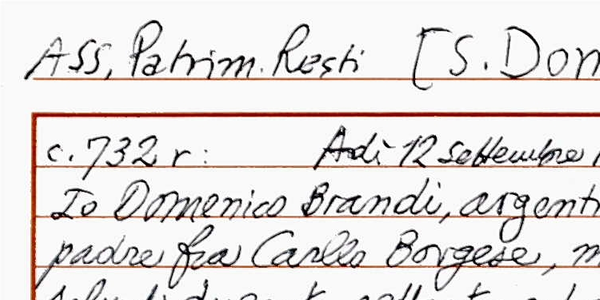 ASS, Patrim. Resti [S. Dom
c. 732 r: Adi 12 settembre
Io Domenico Brandi, argenti
padre fra Carllo Borgese, m